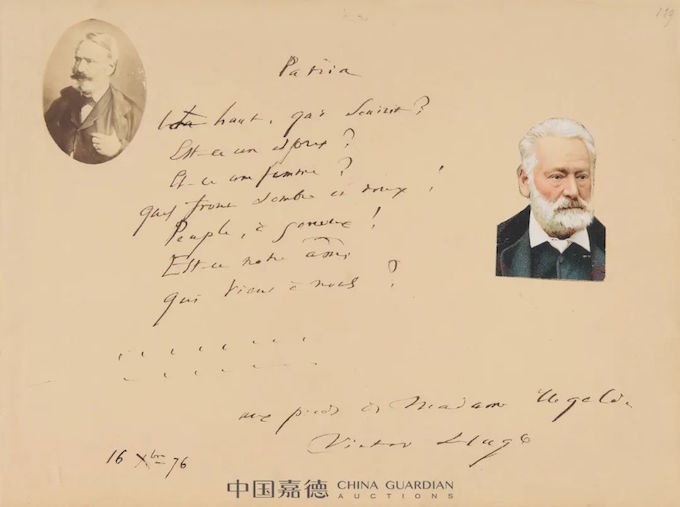 Patria
Là haut, qui sourit ?
Est-ce un esprit ?
Est-ce une femme ?
quel front sombre et doux !
Peuple, à genoux !
Est-ce notre âme
qui vient à nous ?
aux pieds de Madame Ugalde
Victor Hugo
16 Xbre 76
中国嘉德 CHINA GUARDIAN
AUCTIONS